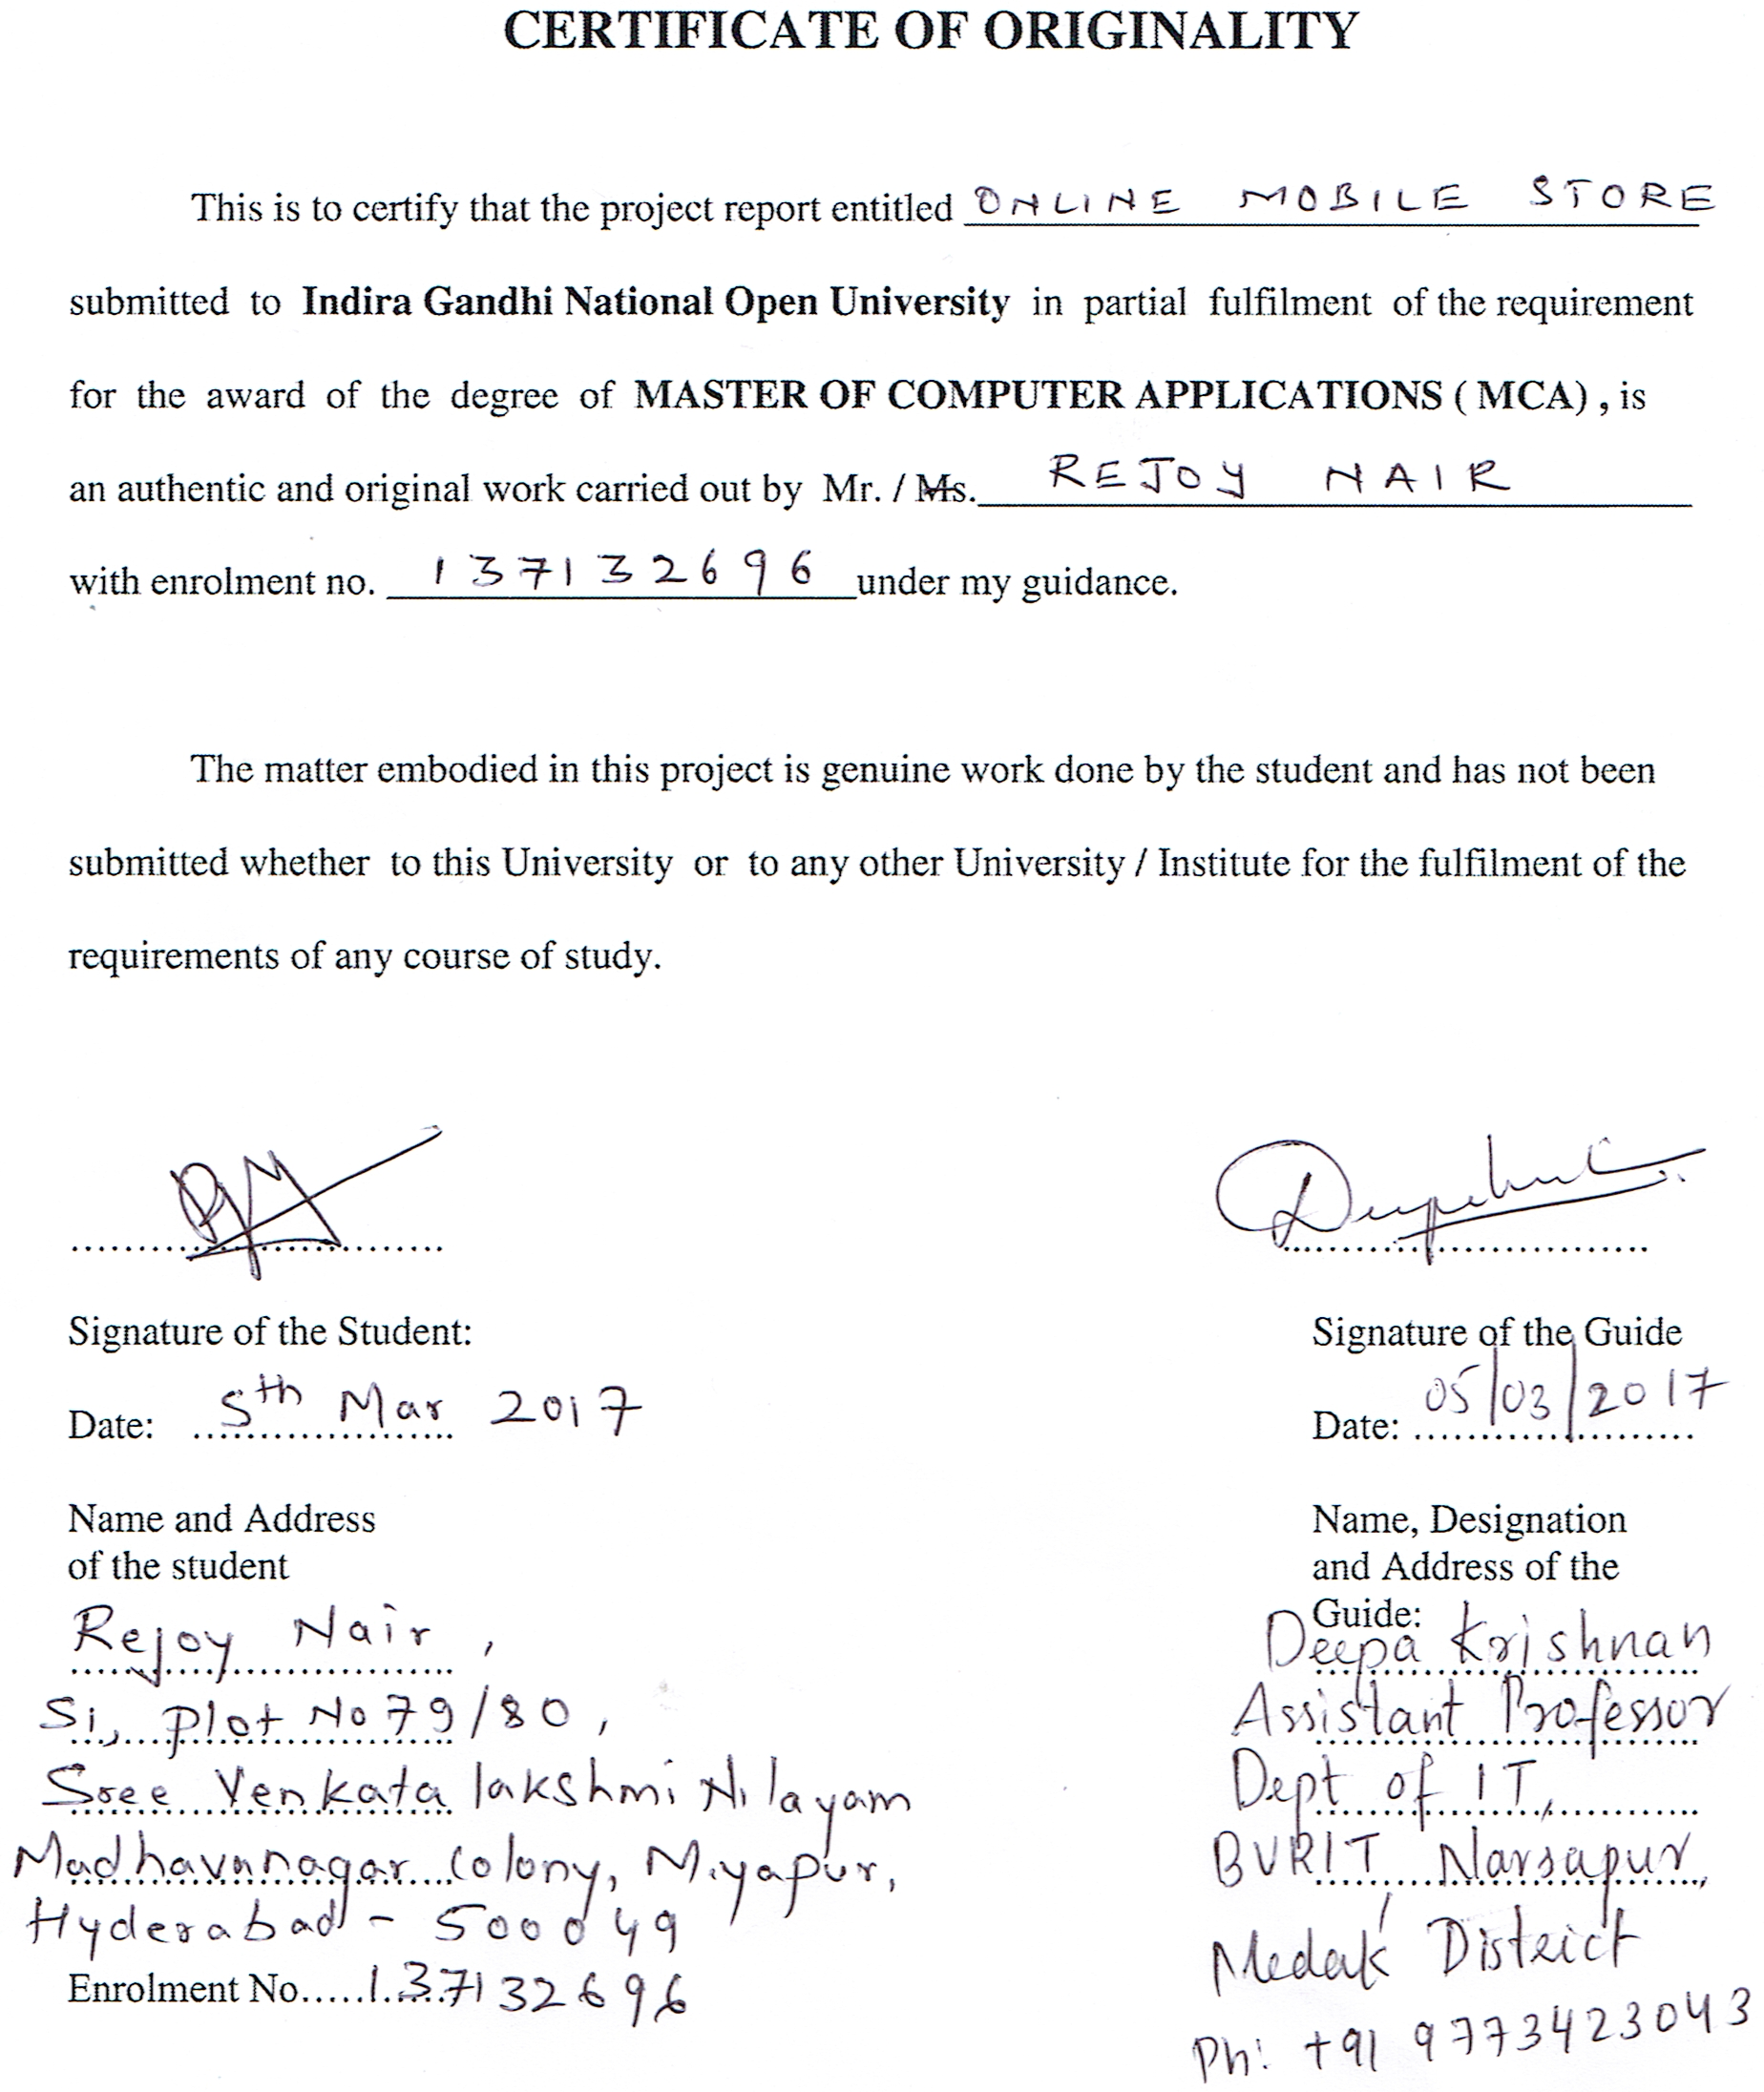 CERTIFICATE OF ORIGINALITY
This is to certify that the project report entitled ONLINE MOBILE STORE
submitted to Indira Gandhi National Open University in partial fulfilment of the requirement
for the award of the degree of MASTER OF COMPUTER APPLICATIONS ( MCA) , is
an authentic and original work carried out by Mr. / Ms. REJOY NAIR
with enrolment no. 137132696 under my guidance.
The matter embodied in this project is genuine work done by the student and has not been
submitted whether to this University or to any other University / Institute for the fulfilment of the
requirements of any course of study.
Signature of the Student:
Date: 5th Mar 2017
Name and Address
of the student
Rejoy Nair,
S1, Plot No 79/80,
Sree Venkata lakshmi Nilayam
Madhavanagar Colony, Miyapur,
Hyderabad - 500049
Enrolment No.....137132696
Signature of the Guide
Date: 05/03/2017
Name, Designation
and Address of the
Guide:
Deepa Krishnan
Assistant Professor
Dept of IT,
BVRIT, Narsapur,
Medak District
Ph: +91 9773423043